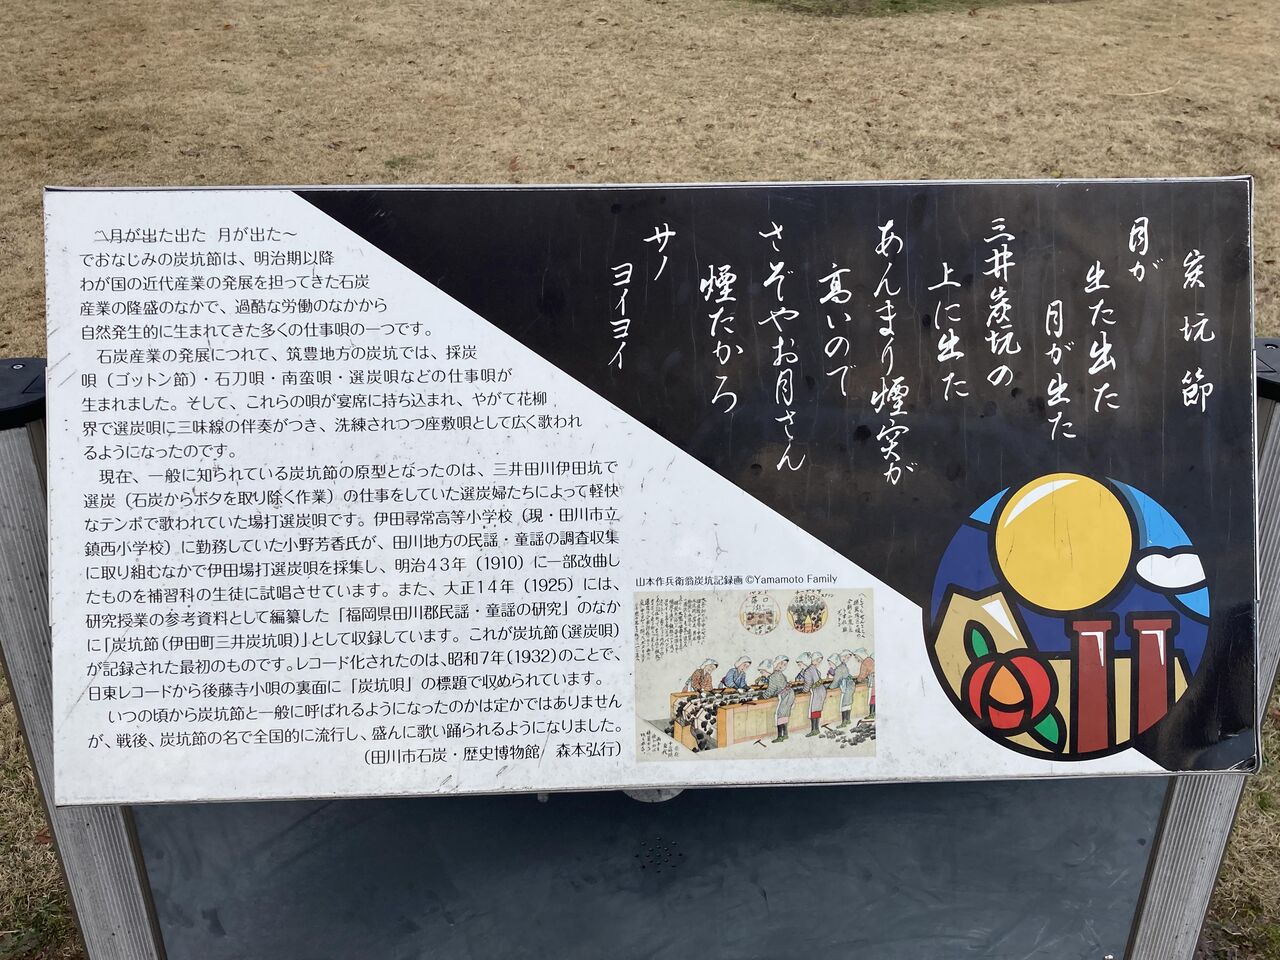 炭坑節
月が
出た出た
月が出た
三井炭坑の
上に出た
あんまり煙突が
高いので
さぞやお月さん
煙たかろ
サノ
ヨイヨイ
〽月が出た出た 月が出た～
でおなじみの炭坑節は、明治期以降
わが国の近代産業の発展を担ってきた石炭
産業の隆盛のなかで、過酷な労働のなかから
自然発生的に生まれてきた多くの仕事唄の一つです。
石炭産業の発展につれて、筑豊地方の炭坑では、採炭
唄（ゴットン節）・石刀唄・南蛮唄・選炭唄などの仕事唄が
生まれました。そして、これらの唄が宴席に持ち込まれ、やがて花柳
界で選炭唄に三味線の伴奏がつき、洗練されつつ座敷唄として広く歌われ
るようになったのです。
現在、一般に知られている炭坑節の原型となったのは、三井田川伊田坑で
選炭（石炭からボタを取り除く作業）の仕事をしていた選炭婦たちによって軽快
なテンポで歌われていた場打選炭唄です。伊田尋常高等小学校（現・田川市立
鎮西小学校）に勤務していた小野芳香氏が、田川地方の民謡・童謡の調査収集
に取り組むなかで伊田場打選炭唄を採集し、明治４３年（1910）に一部改曲し
たものを補習科の生徒に試唱させています。また、大正１４年（1925）には、
研究授業の参考資料として編纂した「福岡県田川郡民謡・童謡の研究」のなか
に「炭坑節（伊田町三井炭坑唄）」として収録しています。これが炭坑節（選炭唄）
が記録された最初のものです。レコード化されたのは、昭和７年（1932）のことで、
日東レコードから後藤寺小唄の裏面に「炭坑唄」の標題で収められています。
いつの頃から炭坑節と一般に呼ばれるようになったのかは定かではありません
が、戦後、炭坑節の名で全国的に流行し、盛んに歌い踊られるようになりました。
（田川市石炭・歴史博物館 森本弘行）
山本作兵衛翁炭坑記録画 ©Yamamoto Family